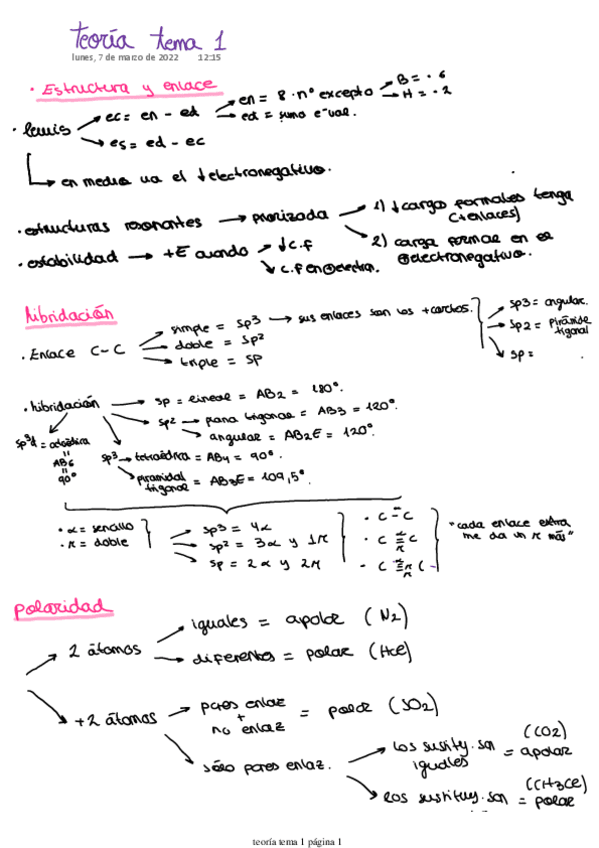 teoría tema 1
lunes, 7 de marzo de 2022 12:15
· Estructura y enlace
· lewis → ec = en - ed → en = 8 · nº excepto → B = · 6
→ H = · 2
→ ed = suma e⁻ val.
→ es = ed - ec
→ en medio va el ↓ electronegativo.
· estructuras resonantes → priorizada → 1) ↓ cargas formales tenga
(+ enlaces)
→ 2) carga formal en el
⊕ electronegativo.
· estabilidad → +E cuando → ↓ c.f
→ c.f en ⊕ electron.
hibridación
· Enlace C-C → simple = sp3 → sus enlaces son los + cortos.
→ doble = sp2
→ triple = sp
→ sp3 = angular.
→ sp2 = pirámide
trigonal
→ sp = .
· hibridación → sp = lineal = AB2 = 180°.
→ sp2 → plana trigonal = AB3 = 120°.
→ angular = AB2E = 120°.
sp3d = octoédrica
=
AB6
=
90°
sp3 → tetraédrica = AB4 = 90°.
→ piramidal
trigonal = AB3E = 109,5°.
· α = sencillo
· π = doble
→ sp3 = 4α
→ sp2 = 3α y 1π
→ sp = 2α y 2π
· C - C
· C = C
π
- C ≡ C -
π
"cada enlace extra
me da un π más"
polaridad
→ 2 átomos → iguales = apolar (N2)
→ diferentes = polar (HCl)
→ +2 átomos → pares enlaz
+
no enlaz
= polar (SO2)
→ sólo pares enlaz. → los sustity. son
iguales
= apolar
(CO2)
→ los sustituy. son = polar
(CH3Cl)
teoría tema 1 página 1